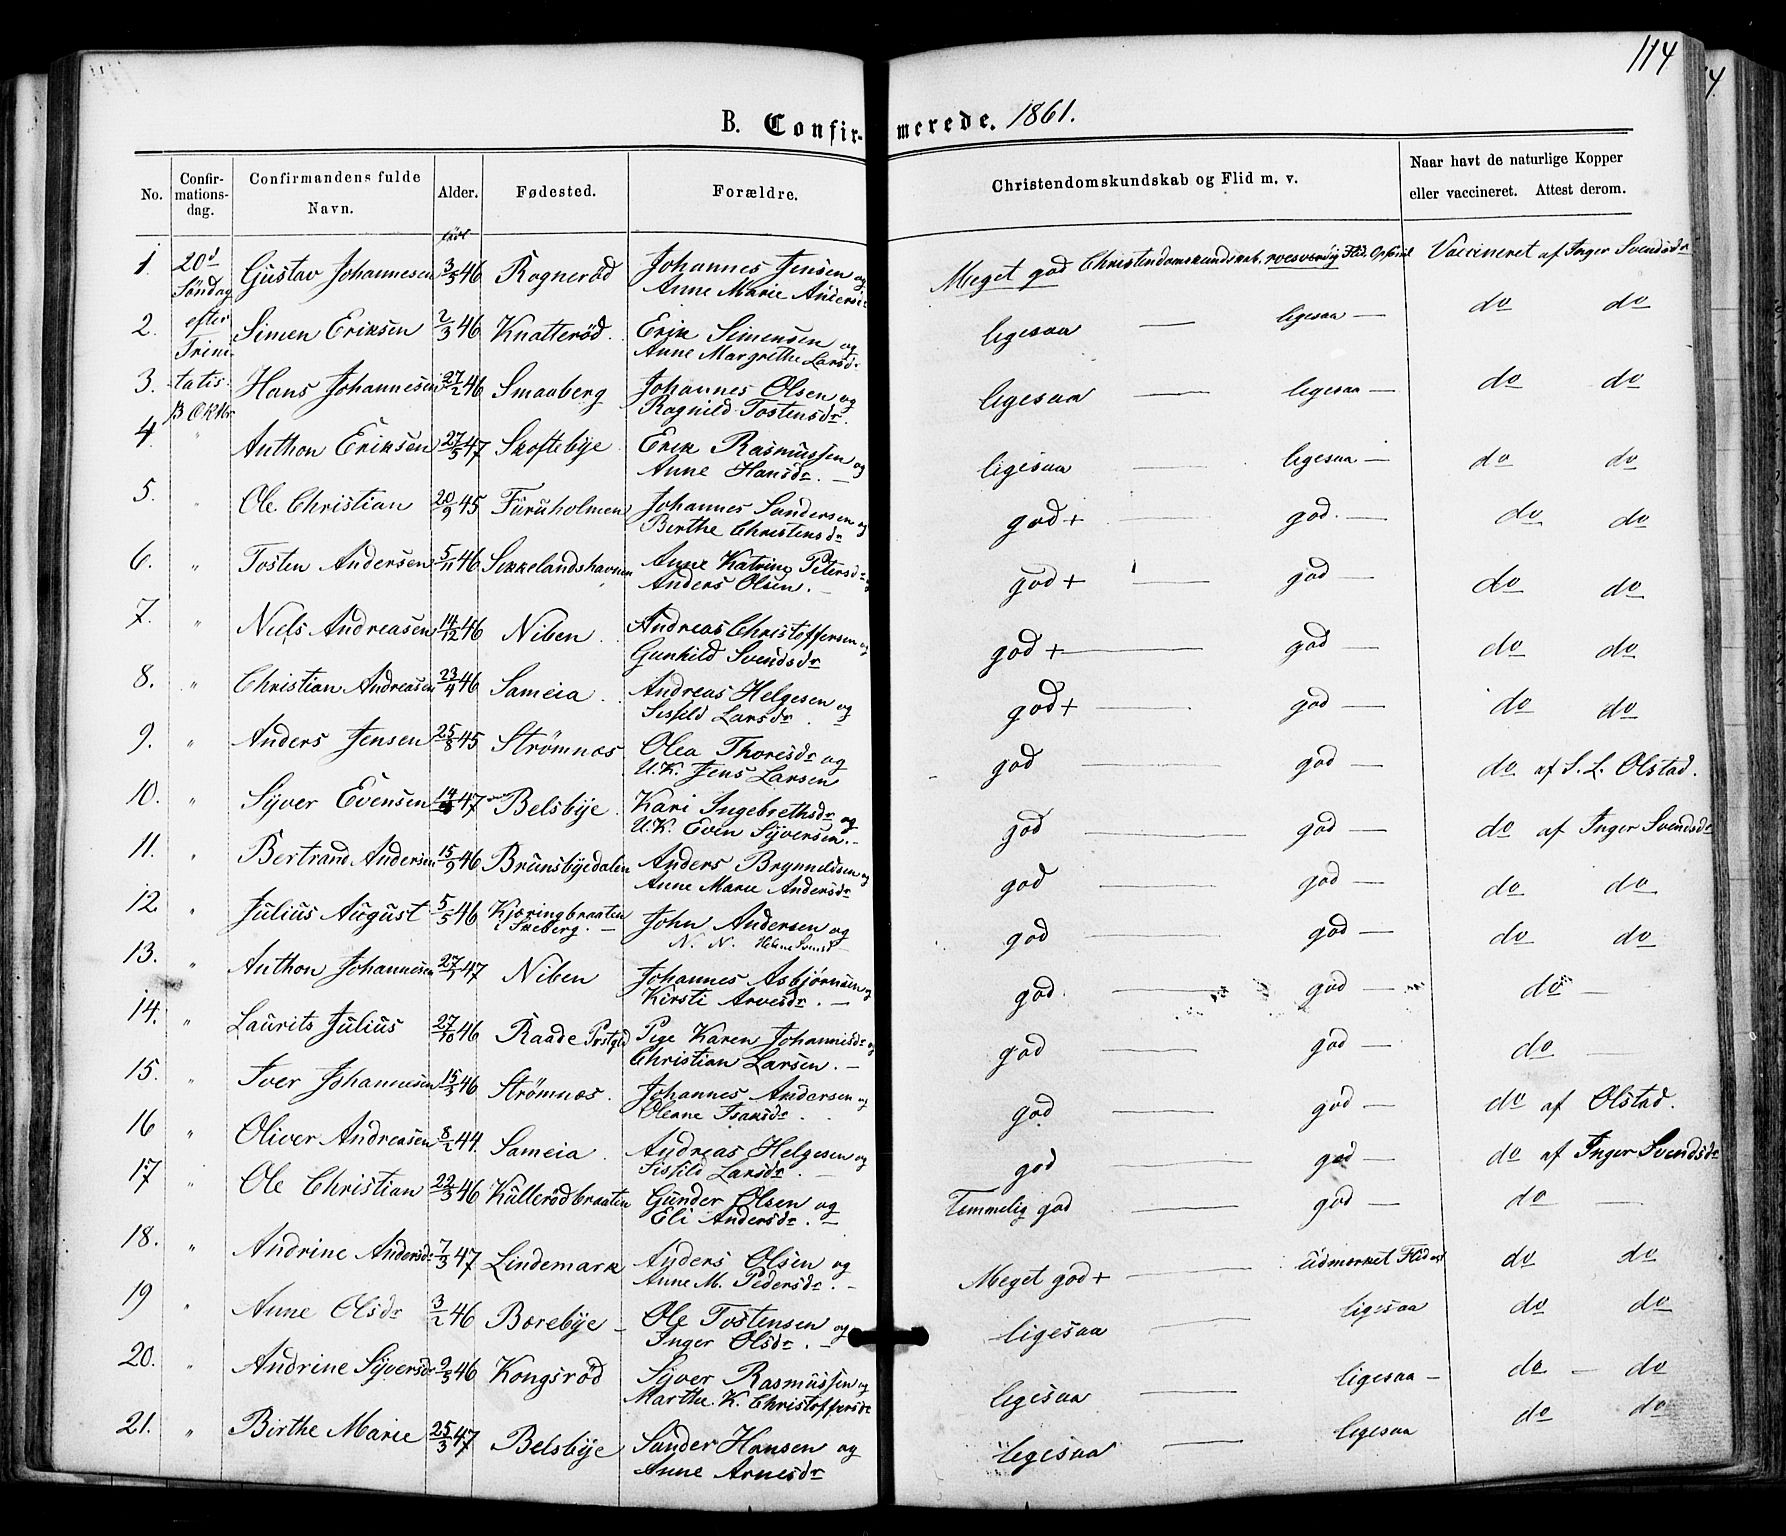 114
B. Confir- merede. 1861.
No. Confir-mations-dag. Confirmandens fulde Navn. Alder. Fødested. Forældre. Christendomskundskab og Flid m. v. Naar havt de naturlige Kopper eller vaccineret. Attest derom.
født
1. 20d Søndag Gustav Johannesen 3/5 46 Rognerød Johannes Jensen og Meget god Christendomskundskab, roesværdig Flid. Opførsel Vaccineret af Inger Svendsdr
Anne Marie
2. efter Trini- Simen Eriksen 2/3 46 Knatterød. Erik Simensen og ligesaa — ligesaa — do do
Anne Margrethe Larsdr
3. tatis. Hans Johannesen 27/2 46 Smaaberg Johannes Olsen og ligesaa — ligesaa — do do
13 Oktbr Ragnild Tostensdr.
4. " Anthon Eriksen 27/5 47 Skoftebye Erik Rasmussen og ligesaa — ligesaa — do do
Anne Hansdr. —
5. " Ole Christian 20/9 45 Furuholmen Johannes Sandersen og god + — god. — do do
Birthe Christensdr
6. " Tosten Andersen 5/11 46 Sikkelandshavnen Anne Katrine Petersdr god + — god — do do
Anders Olsen. —
7. " Niels Andreasen 14/12 46 Niben. Andreas Christoffersen og god + — god — do do
Gunhild Svendsdr
8. " Christian Andreasen 23/4 46 Sameia. Andreas Helgesen og god + — god — do do
Sissild Larsdr.
9. " Anders Jensen 25/8 45 Strømnæs Olea Thoresdr og god — god — do af S. L. Olstad.
U.K. Jens Larsen
10. " Syver Evensen 47 Belsbye. Kari Ingebrethsdr og god — god — do af Inger Svendsdr
U.K. Even Syversen. —
11. " Bertrand Andersen 15/9 46 Brunsbyedalen Anders Brynnildsen og god — god — do do
Anne Marie Andersdr
12. " Julius August 5/5 46 Kjæringbraaten i Skeberg. — John Andersen og god — god — do do
N. N. Helene
13. " Anthon Johannesen 47 Niben Johannes Asbjørnsen og god. — god — do —
Kirsti Arvesdr. —
14. " Laurits Julius 27/10 46 Raade Prstgld Pige Karen Johannisdr og god — god — do —
Christian Larsen. —
15. " Iver Johannesen 15/3 46 Strømnæs. Johannes Andersen og god — god — do af Olstad.
Olenne Isaksdr.
16 " Oliver Andreasen 8/2 44. Sameia. Andreas Helgesen og god — god — do af Inger Svendsdr
Sissild Larsdr. —
17 " Ole Christian 22/3 46 Kullerødbraaten Gunder Olsen og Temmelig god — god — do —
Eli Andersdr. —
18. " Andrine Andersdr 7/3 47 Lindemark Anders Olsen og Meget god + — udmærket Flid do do
Anne M. Pedersdr. —
19 " Anne Olsdr 3/2 46 Borebye — Ole Tostensen og ligesaa — ligesaa do do
Inger Olsdr. —
20. " Andrine Syversdr 2/5 46 Kongsrød Syver Rasmussen og ligesaa — ligesaa — do — do
Marthe. K. Christoffersdr
21. " Birthe Marie 25/3 47 Belsbye Sander Hansen og ligesaa — ligesaa do do
Anne Arnesdr